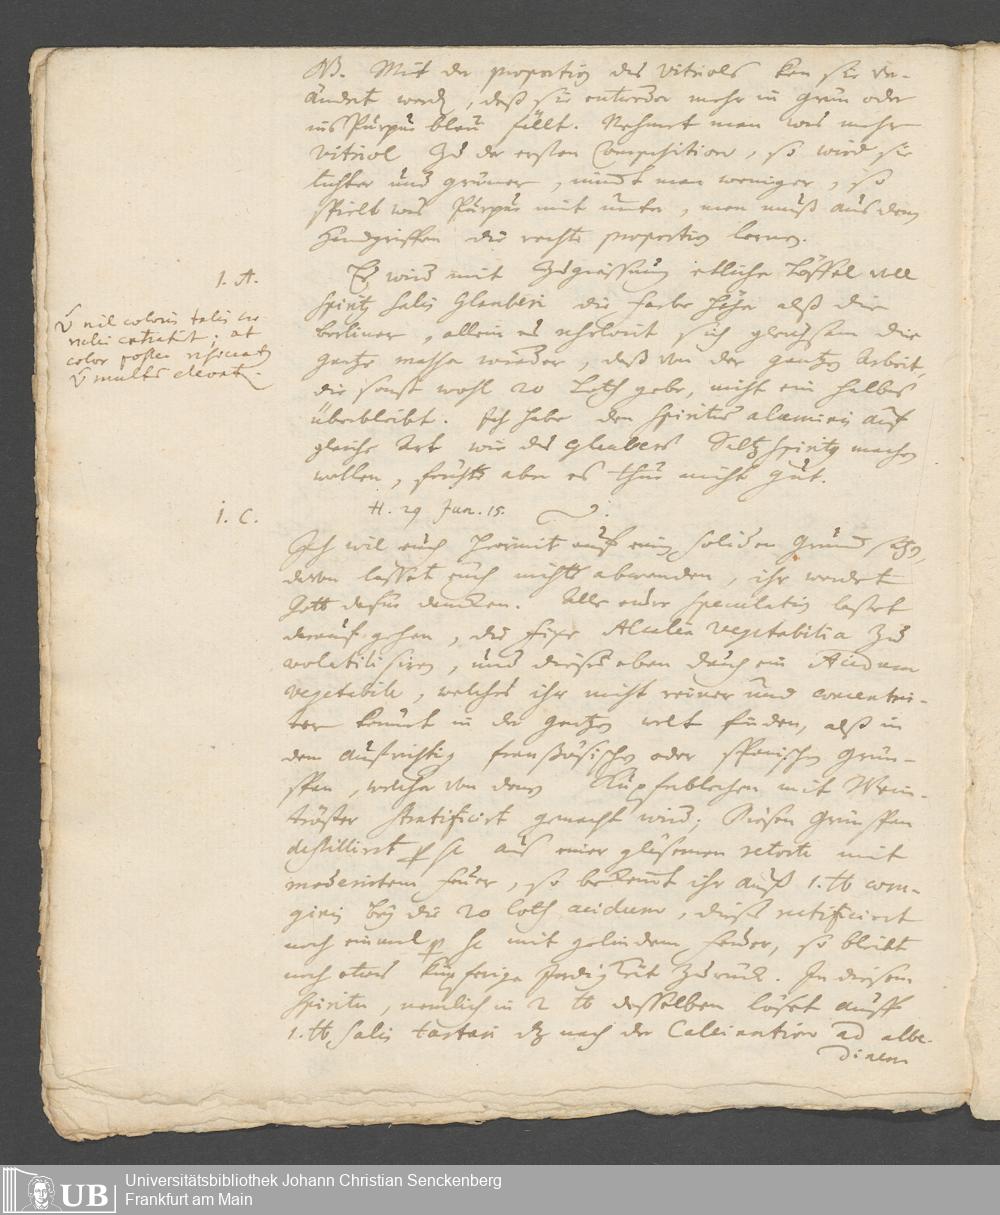 NB. Mit der proportion des Vitriols kan sie ver-
ändert werden, daß sie entweder mehr in grün oder
ins Purpur blau fällt. Nehmet man was mehr
Vitriol zu der ersten Composition, so wird sie
lichter und grüner, nimt man weniger, so
spielt was Purpur mit unter, man muß aus dem
Handgriffen die rechte proportion lernen.
1. A.
Es wird mit Zugiessung etliche Löffel voll
Spirit Salis Glauberi die farbe schön alß die
berliner, allein es verlieret sich gleichsam die
gantze massa wieder, daß von der gantzen Arbeit,
die sonst wohl 20 Loth gebe, nicht ein halbes
überbleibt. Ich habe den Spiritus aluminis auf
gleiche Art wie des Glaubers Saltz Spiritus machen
wollen, aber es thut nicht gut.
nil coloris talis
extrahit; at
color postea
multis
1. C.
H. 29 Jun. 15.
Ich wil euch hiermit auf einen soliden Grund setzen,
davon lasset euch nichts abwenden, ihr werdet
Gott dafür dancken. Alle eure Speculation lasset
darauf gehen, die fixe Alcalia vegetabilia zu
volatilisiren, und dieses eben durch ein Acidum
vegetabile, welches ihr nicht reiner und concentrir-
ter könnt in der gantzen welt finden, alß in
dem aufrichtig französischen oder spanischen Grün-
span, welcher von denen Kupferblechen mit Wein-
tröster stratificirt gemacht wird; Diesen Grünspan
destillirt per se aus einer gläsernen retorte mit
moderirtem feuer, so bekommt ihr auß 1. lb com-
muni bey die 20 loth acidum, dieses rectificirt
noch einmal per se mit gelindem feuer, so bleibt
noch etwas kupferige zurück. In diesem
Spiritu, nemlich in 2 lb desselben löset auff
1. lb Salis tartari dz nach der Calcination ad albe-
dinem
Universitätsbibliothek Johann Christian Senckenberg
Frankfurt am Main
UB